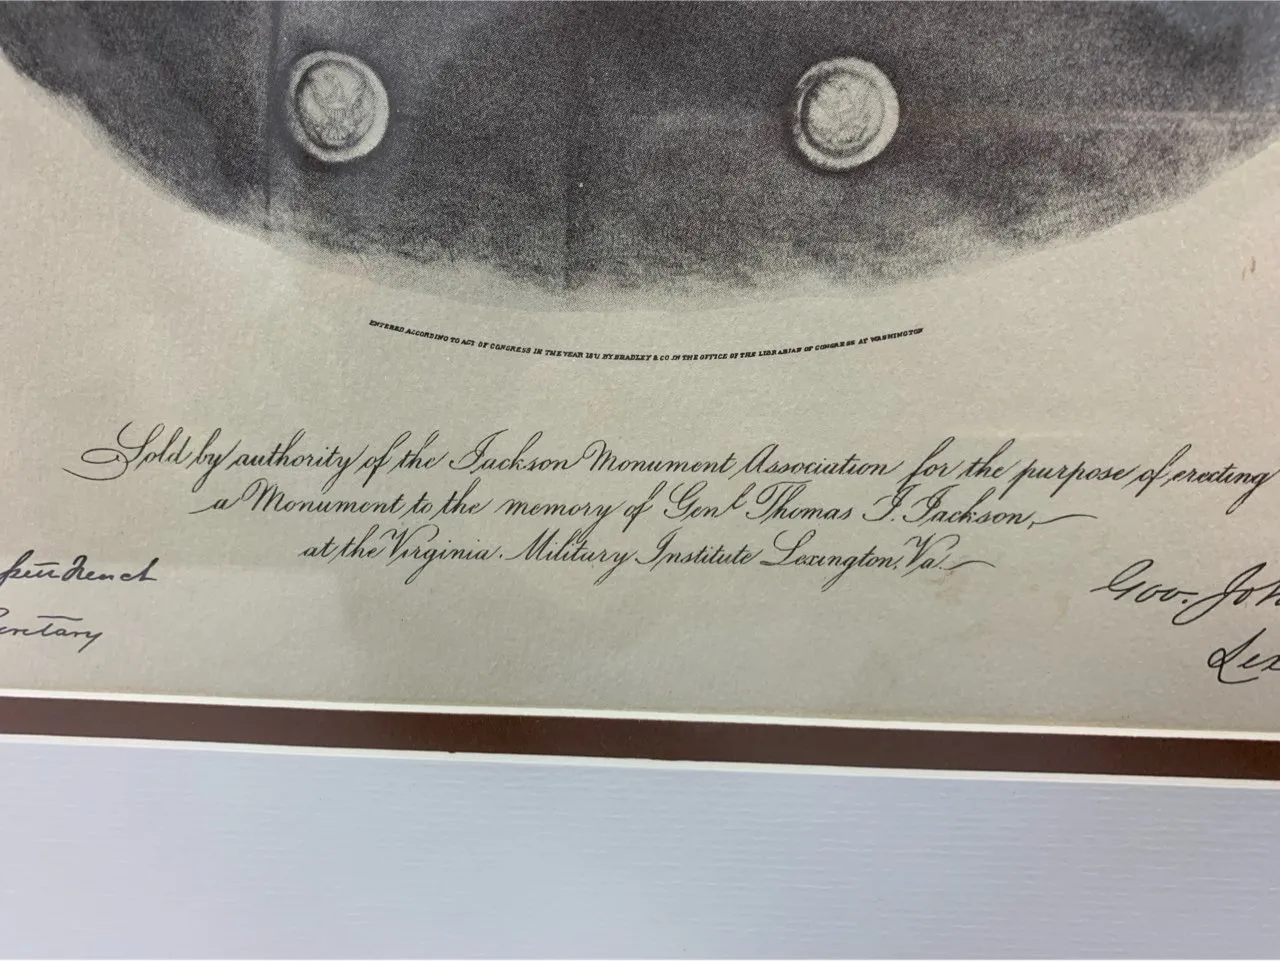 ENTERED ACCORDING TO ACT OF CONGRESS IN THE YEAR BY BRADLEY & CO IN THE OFFICE OF THE LIBRARIAN OF CONGRESS AT WASHINGTON
Sold by authority of the Jackson Monument Association for the purpose of erecting
a Monument to the memory of Genl. Thomas J. Jackson,
at the Virginia Military Institute Lexington, Va.
Gov. Joh
Lex